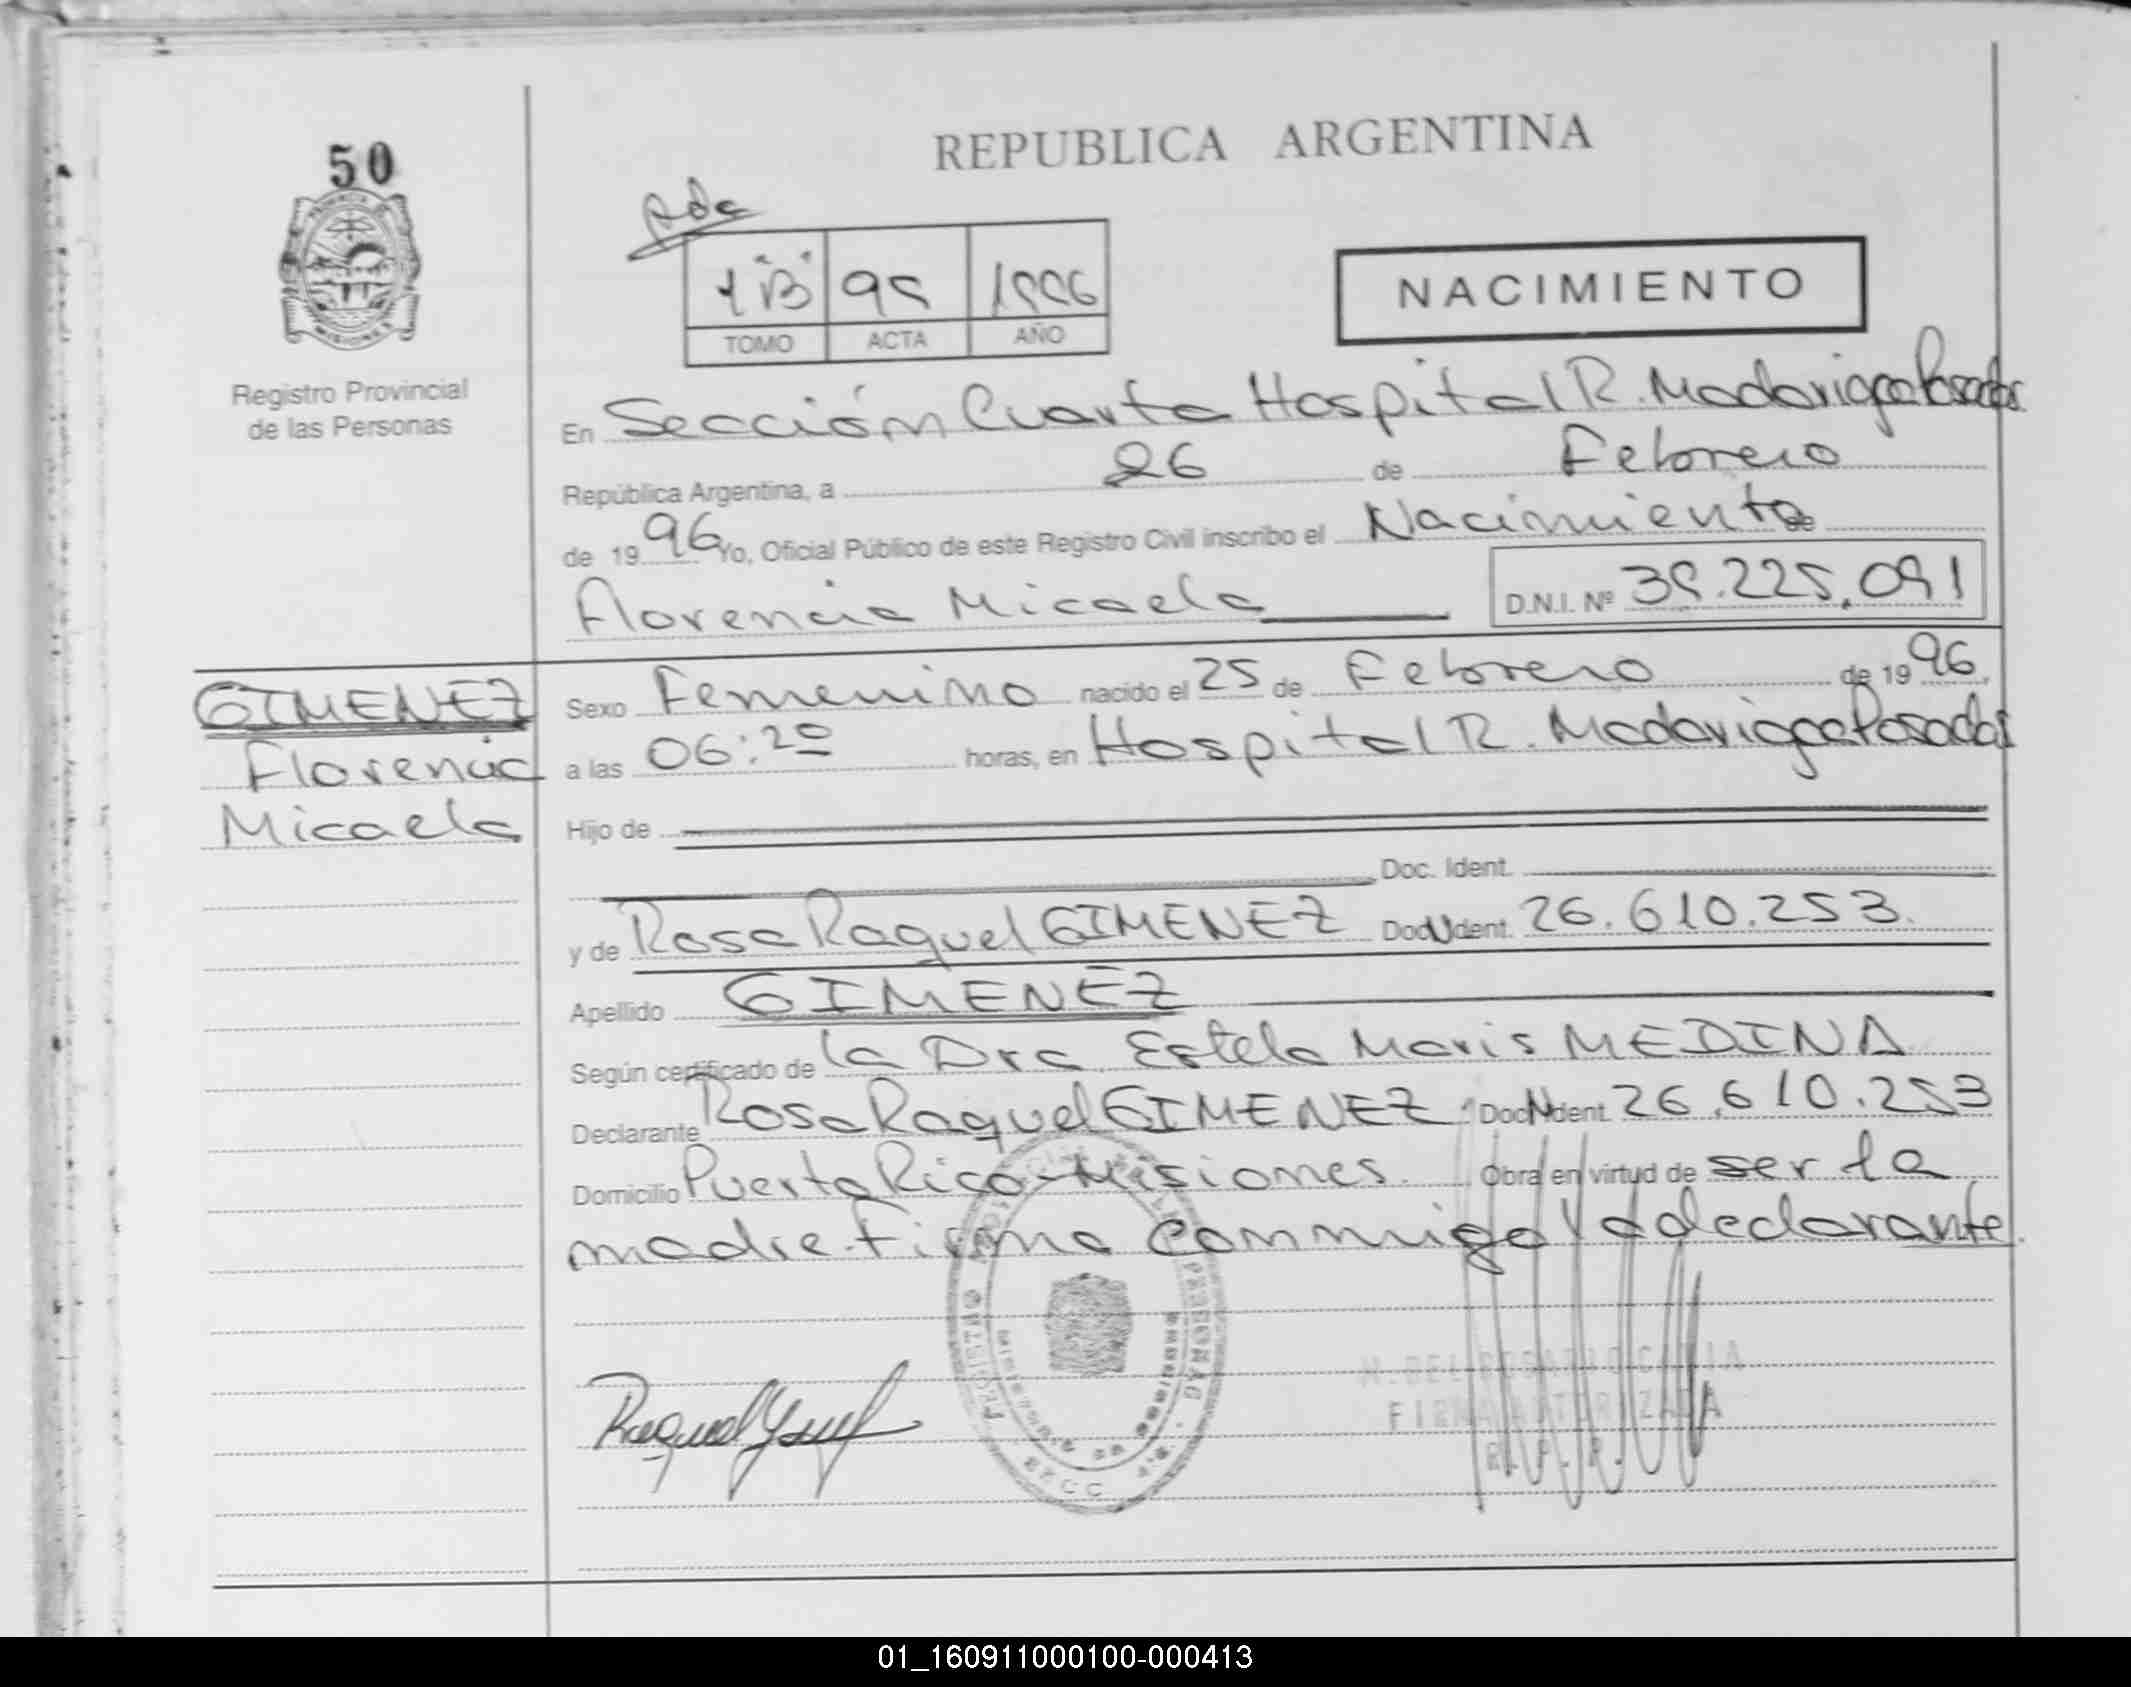 50
REPUBLICA ARGENTINA
1"B" 99 1996
TOMO ACTA AÑO
NACIMIENTO
Registro Provincial
de las Personas
En Sección Cuarta Hospital R. Madariaga Posadas
República Argentina, a 26 de Febrero
de 1996 Yo, Oficial Público de este Registro Civil inscribo el Nacimiento de
Florencia Micaela D.N.I. Nº 39.225.091
GIMENEZ
Florencia
Micaela
Sexo Femenino nacido el 25 de Febrero de 1996,
a las 06:20 horas, en Hospital R. Madariaga Posadas
Hijo de
Doc. Ident.
y de Rosa Raquel GIMENEZ Doc. Ident. 26.610.253.
Apellido GIMENEZ
Según certificado de la Dra. Estela Maris MEDINA
Declarante Rosa Raquel GIMENEZ Doc. Ident. 26.610.253
Domicilio Puerto Rico-Misiones. Obra en virtud de ser la
madre. Firma conmigo la declarante.
FIRMA AUTORIZADA
R.P.P.
01_160911000100-000413